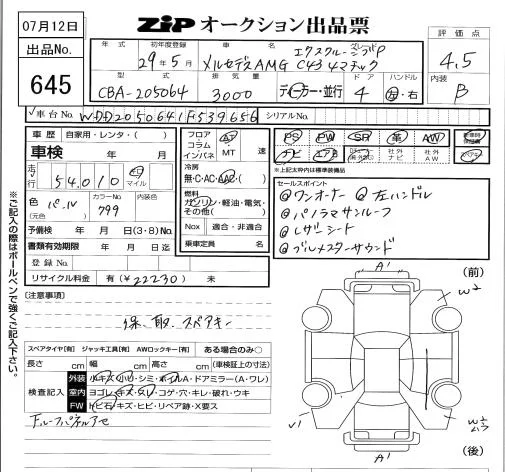 07月12日
ZiP オークション出品票
出品No.
645
年式 初年度登録 車名 グレード ドア ハンドル
29年5月 メルセデスAMG エクスクルーシブP C43 4マチック
型式 排気量
CBA-205064 3000 ディーラー・並行 4 左・右
評価点
4.5
内装
B
車台No. WDD2050641F539656 シリアルNo.
車歴 自家用・レンタ( )
車検 年 月
走行 54,010 km マイル
色 (元色) パール カラーNo. 799 内装色
予備検 年 月 日(3・8)No.
書類有効期限 年 月 日迄
登録No.
リサイクル料金 有(¥22230) 未
フロア コラム インパネ AT MT 速
冷房 無・C・AC・AAC( )
燃料 ガソリン・軽油・電気・その他( )
Nox 適合・非適合
乗車定員 名
PS PW SR 革 AW
ナビ エアB 社外ナビ 社外AW
※上記太枠内は標準装備品
セールスポイント
@ワンオーナー @左ハンドル
@パノラマサンルーフ
@レザーシート
@ブルメスターサウンド
【注意事項】
保、取、スペアキー
スペアタイヤ[有] ジャッキ工具[有] AWロックキー[有] ある場合のみ○
長さ cm 幅 cm 高さ cm (車検証上の寸法)
検査記入
外装 小キズ・小リ・シミ・ホイルA・ドアミラー(A・ワレ)
室内 ヨゴレ・キズ・スレ・コゲ・穴・キレ・破れ・ウキ
FW トビ石・キズ・ヒビ・リペア跡・X要ス
※ご記入の際はボールペンで強くご記入下さい。
A1
(前)
W2
V1
W2
A1
(後)